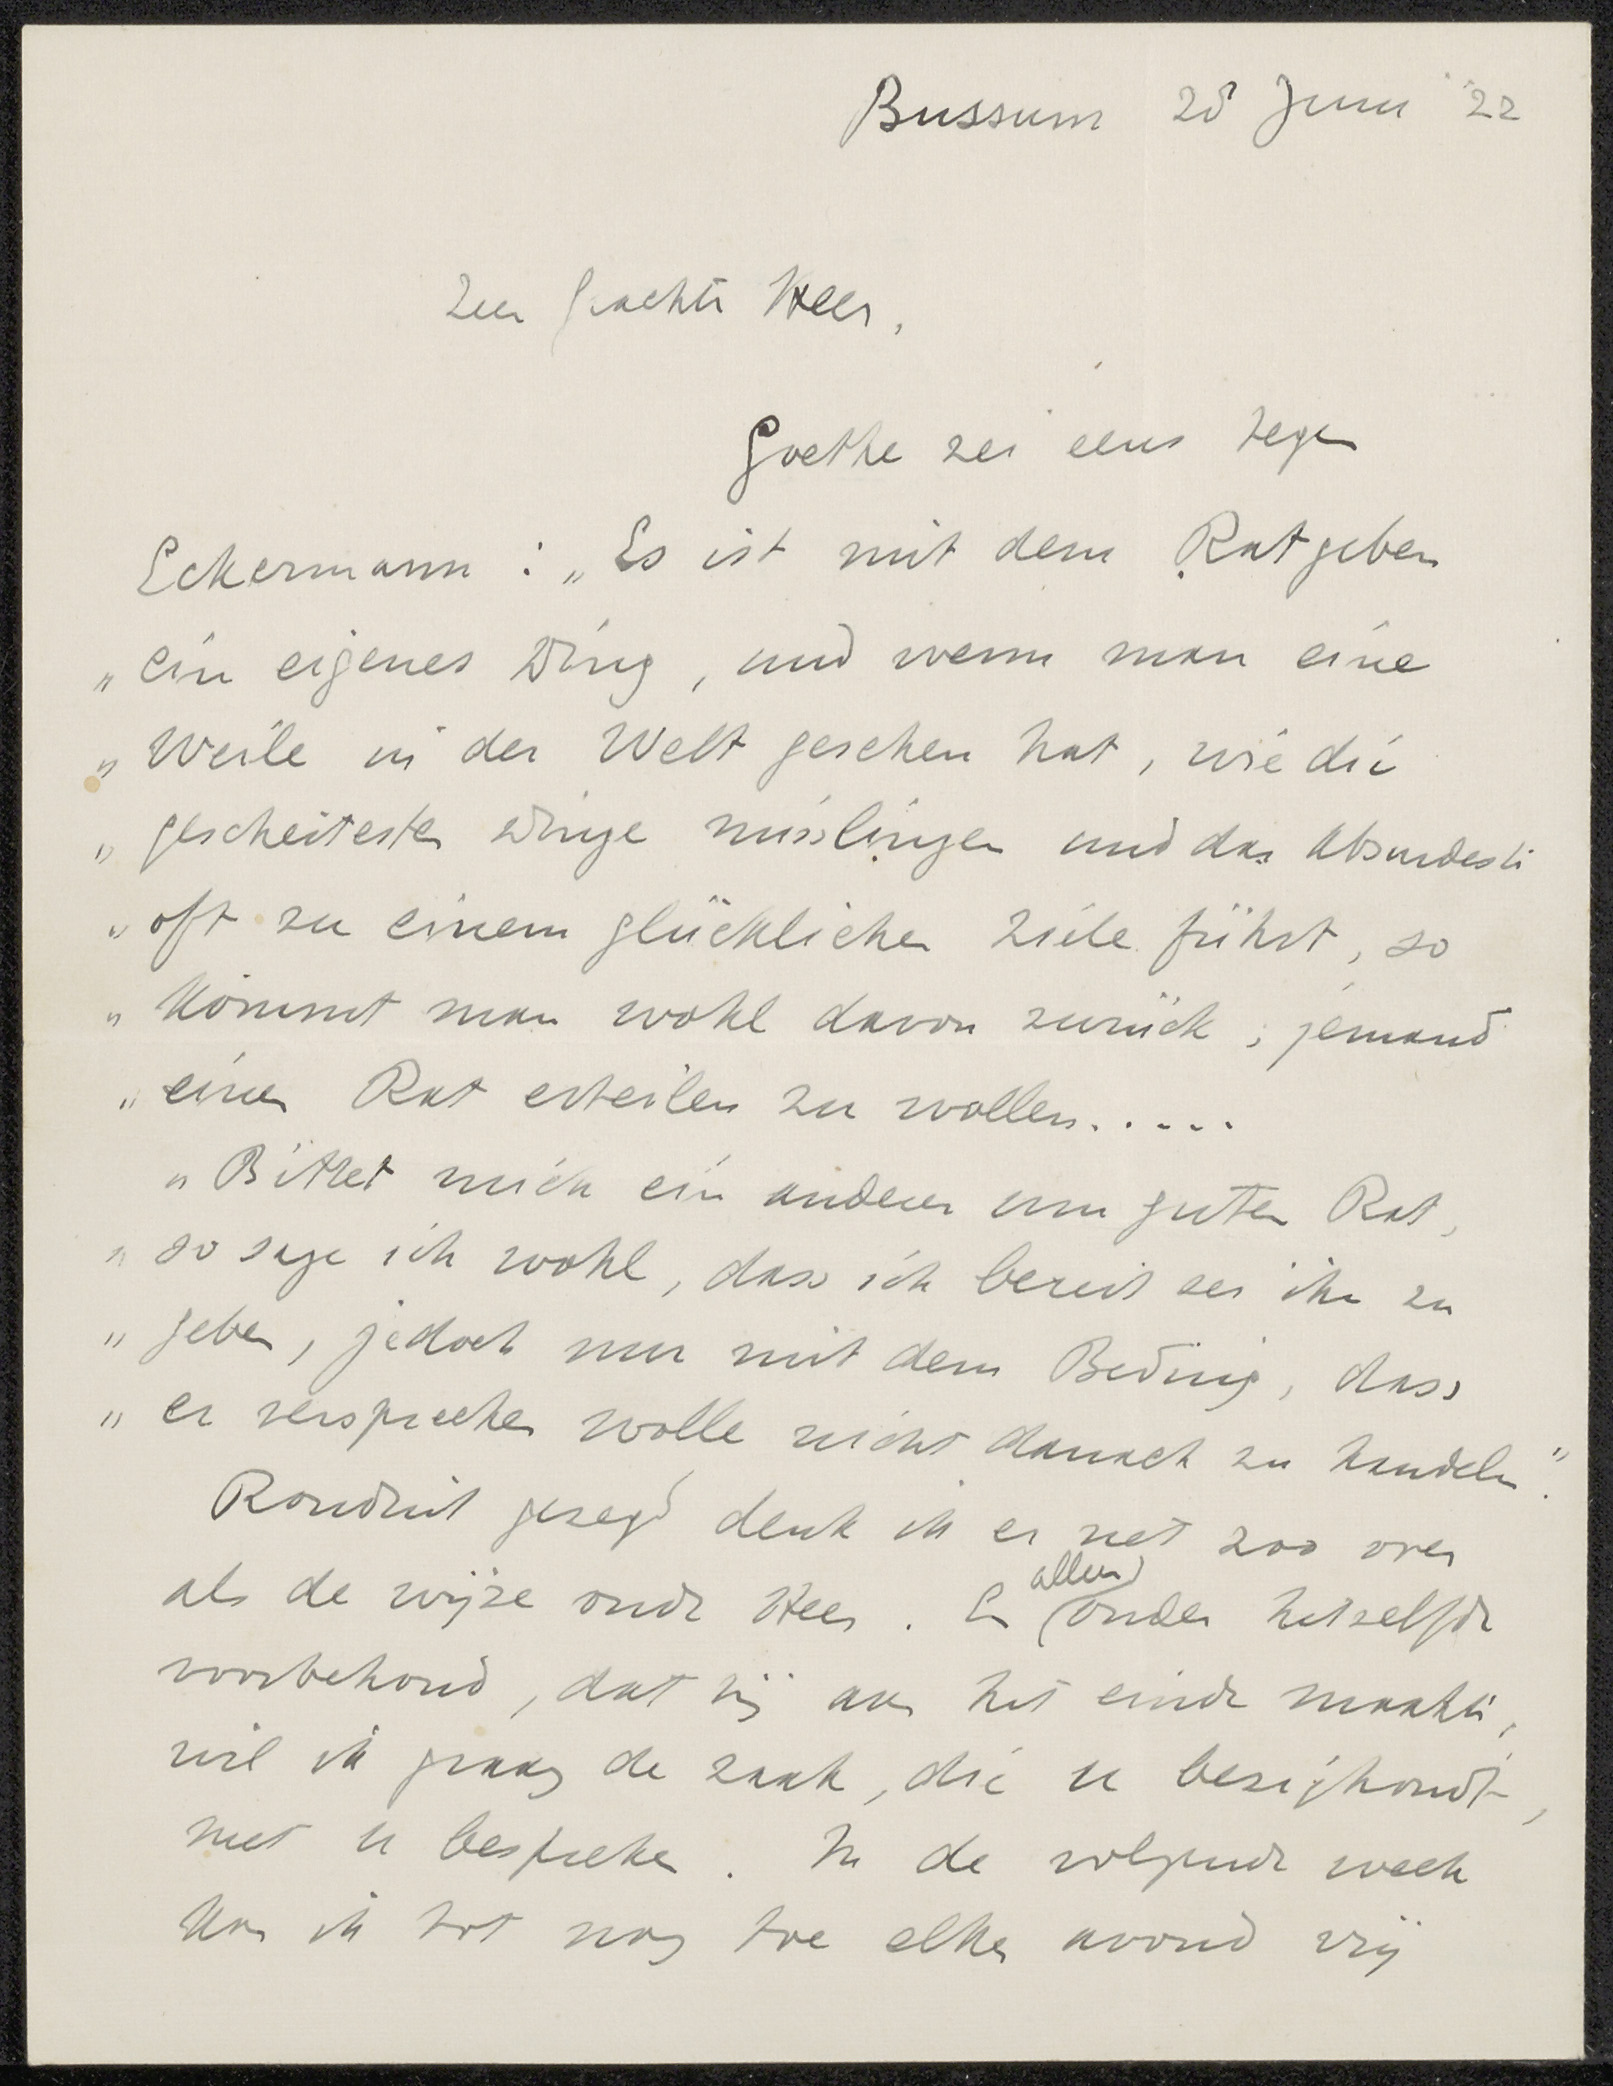 Bussum 28 Juni '22
Zeer Geachte Heer,
Goethe zei eens tegen
Eckermann : „Es ist mit dem Ratgeben
„ ein eigenes Ding, und wenn man eine
„ Weile in der Welt gesehen hat, wie die
„ gescheitesten Dinge misslingen und das Absurdeste
„ oft zu einem glücklichen Ziele führt, so
„ kommt man wohl davon zurück, jemand
„ einen Rat erteilen zu wollen.....
„ Bittet mich ein anderer um guten Rat,
„ so sage ich wohl, dass ich bereit sei ihn zu
„ geben, jedoch nur mit dem Beding, dass
„ er versprechen wolle nicht danach zu handeln."
Ronduit gezegd denk ik er net zoo over
als de wijze oude Heer. En (alleen) onder hetzelfde
voorbehoud, dat hij aan het einde maakte,
wil ik graag de zaak, die u bezighoudt,
met u bespreken. In de volgende week
kan ik tot nog toe elken avond vrij